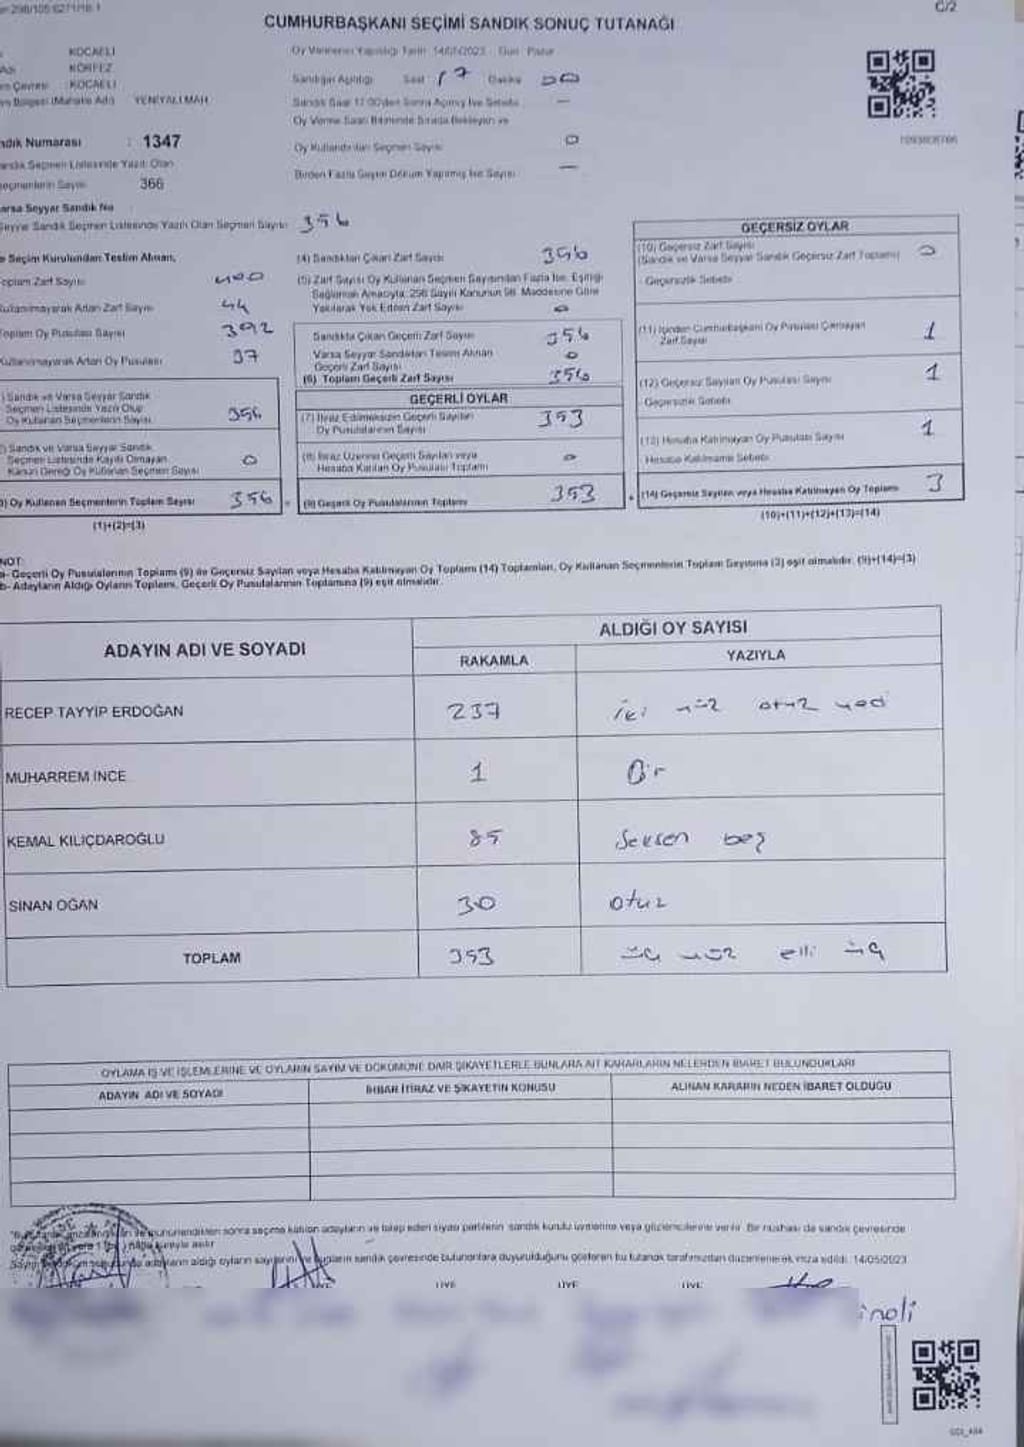 C/2
CUMHURBAŞKANI SEÇİMİ SANDIK SONUÇ TUTANAĞI
KOCAELİ
KÖRFEZ
KOCAELİ
YENİYALI MAH.
Oy Vermenin Yapıldığı Tarih 14/05/2023 Gün Pazar
Sandığın Açıldığı Saat 17 Dakika 00
Sandık Saat 17.00'den Sonra Açılmış İse Sebebi —
Oy Verme Saati Bitiminde Sırada Bekleyen ve
Oy Kullandırılan Seçmen Sayısı 0
Birden Fazla Sayım Döküm Yapılmış İse Sayısı —
Sandık Numarası : 1347
Sandık Seçmen Listesinde Yazılı Olan
Seçmenlerin Sayısı 366
Varsa Seyyar Sandık No
Seyyar Sandık Seçmen Listesinde Yazılı Olan Seçmen Sayısı 356
Seçim Kurulundan Teslim Alınan,
Toplam Zarf Sayısı 400
Kullanılmayarak Artan Zarf Sayısı 44
Toplam Oy Pusulası Sayısı 392
Kullanılmayarak Artan Oy Pusulası 37
Sandık ve Varsa Seyyar Sandık
Seçmen Listesinde Yazılı Olup
Oy Kullanan Seçmenlerin Sayısı 356
Sandık ve Varsa Seyyar Sandık
Seçmen Listesinde Kayıtlı Olmayan
Kanun Gereği Oy Kullanan Seçmen Sayısı 0
Oy Kullanan Seçmenlerin Toplam Sayısı 356
(1)+(2)=(3)
(4) Sandıktan Çıkan Zarf Sayısı 356
(5) Zarf Sayısı Oy Kullanan Seçmen Sayısından Fazla İse, Eşitliği
Sağlamak Amacıyla, 298 Sayılı Kanunun 98. Maddesine Göre
Yakılarak Yok Edilen Zarf Sayısı 0
Sandıkta Çıkan Geçerli Zarf Sayısı 356
Varsa Seyyar Sandıktan Teslim Alınan
Geçerli Zarf Sayısı 0
(6) Toplam Geçerli Zarf Sayısı 356
GEÇERLİ OYLAR
(7) İtiraz Edilmeksizin Geçerli Sayılan
Oy Pusulalarının Sayısı 353
(8) İtiraz Üzerine Geçerli Sayılan veya
Hesaba Katılan Oy Pusulası Toplamı 0
(9) Geçerli Oy Pusulalarının Toplamı 353
GEÇERSİZ OYLAR
(10) Geçersiz Zarf Sayısı
(Sandık ve Varsa Seyyar Sandık Geçersiz Zarf Toplamı) 0
Geçersizlik Sebebi
(11) İçinden Cumhurbaşkanı Oy Pusulası Çıkmayan
Zarf Sayısı 1
(12) Geçersiz Sayılan Oy Pusulası Sayısı 1
Geçersizlik Sebebi
(13) Hesaba Katılmayan Oy Pusulası Sayısı 1
Hesaba Katılmama Sebebi
(14) Geçersiz Sayılan veya Hesaba Katılmayan Oy Toplamı 3
(10)+(11)+(12)+(13)=(14)
NOT:
a- Geçerli Oy Pusulalarının Toplamı (9) ile Geçersiz Sayılan veya Hesaba Katılmayan Oy Toplamı (14) Toplamları, Oy Kullanan Seçmenlerin Toplam Sayısına (3) eşit olmalıdır. (9)+(14)=(3)
b- Adayların Aldığı Oyların Toplamı, Geçerli Oy Pusulalarının Toplamına (9) eşit olmalıdır.
ADAYIN ADI VE SOYADI ALDIĞI OY SAYISI
RAKAMLA YAZIYLA
RECEP TAYYİP ERDOĞAN 237 iki yüz otuz yedi
MUHARREM İNCE 1 Bir
KEMAL KILIÇDAROĞLU 85 Seksen beş
SİNAN OĞAN 30 otuz
TOPLAM 353 üç yüz elli üç
OYLAMA İŞ VE İŞLEMLERİNE VE OYLARIN SAYIM VE DÖKÜMÜNE DAİR ŞİKAYETLERLE BUNLARA AİT KARARLARIN NELERDEN İBARET BULUNDUKLARI
ADAYIN ADI VE SOYADI İHBAR İTİRAZ VE ŞİKAYETİN KONUSU ALINAN KARARIN NEDEN İBARET OLDUĞU
sonra seçime katılan adayların ve talep eden siyasi partilerin sandık kurulu üyelerine veya gözlemcilerine verilir. Bir nüshası da sandık çevresinde
adayların aldığı oyların sayılarını ve bunların sandık çevresinde bulunanlara duyurulduğunu gösteren bu tutanak tarafımızdan düzenlenerek imza edildi. 14/05/2023
ÜYE ÜYE ÜYE